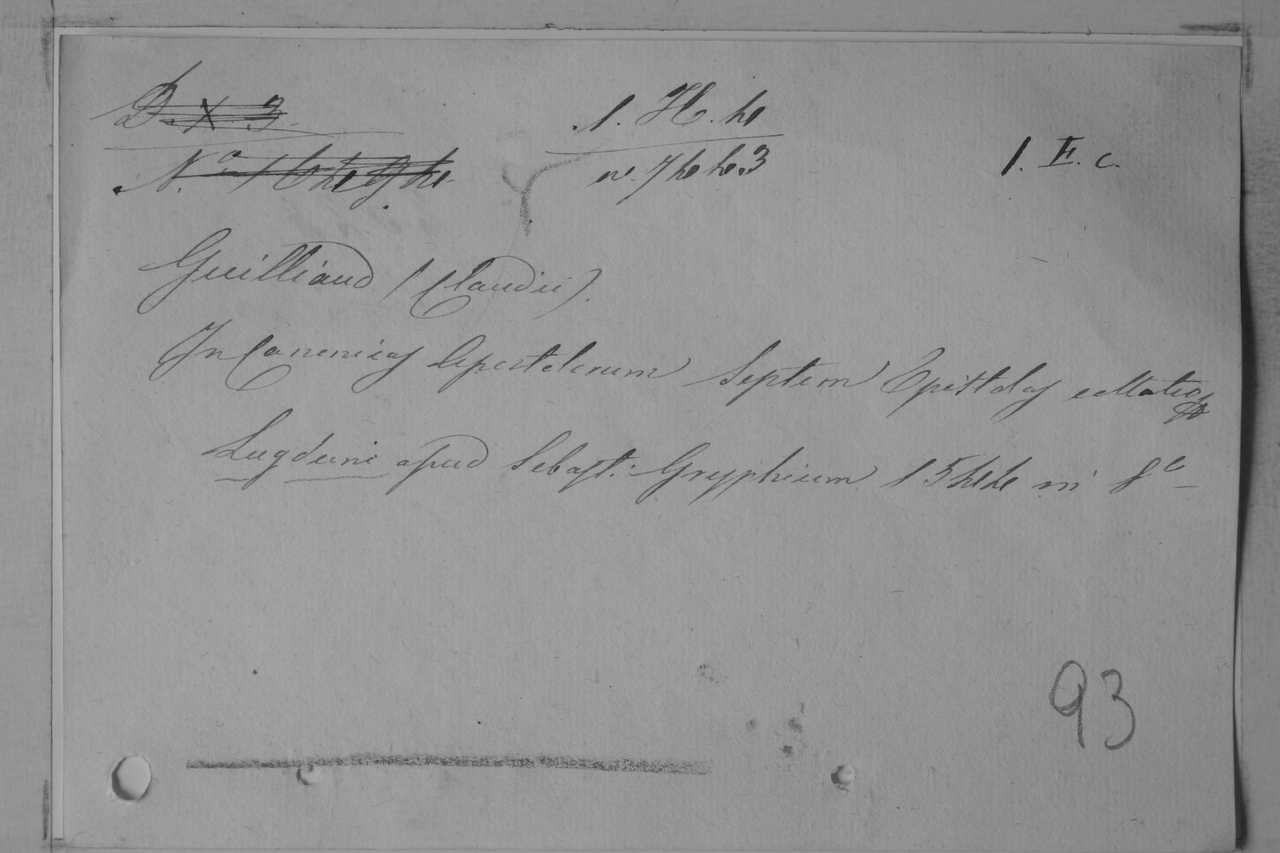 D. X 3.
1. H. 4
N.º
n. 7443
1. E. c.
Guilliaud (Claudii).
In Canonicas Apostolorum Septem Epistolas collatio
Lugduni apud Sebast. Gryphium 1544 in 8º
93